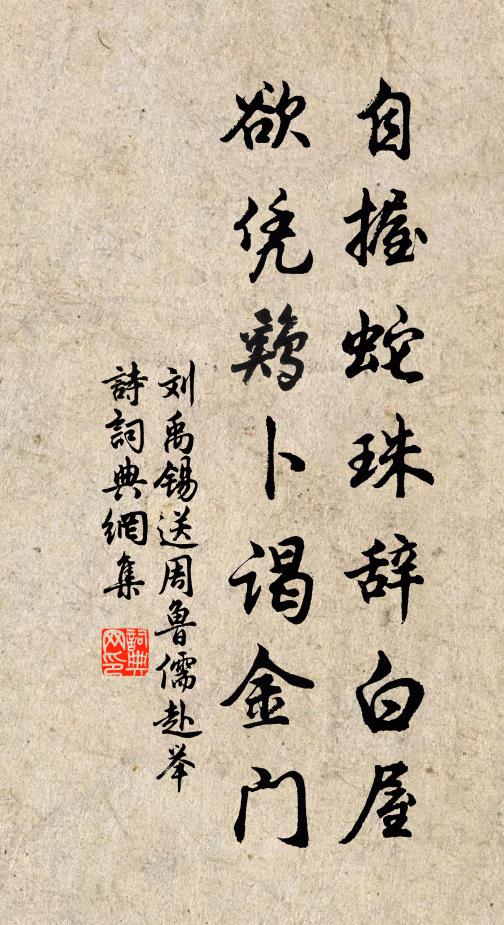 自握蛇珠辞白屋
欲凭鸡卜谒金门
刘禹锡送周鲁儒赴举
詩詞典網集
詞典网印